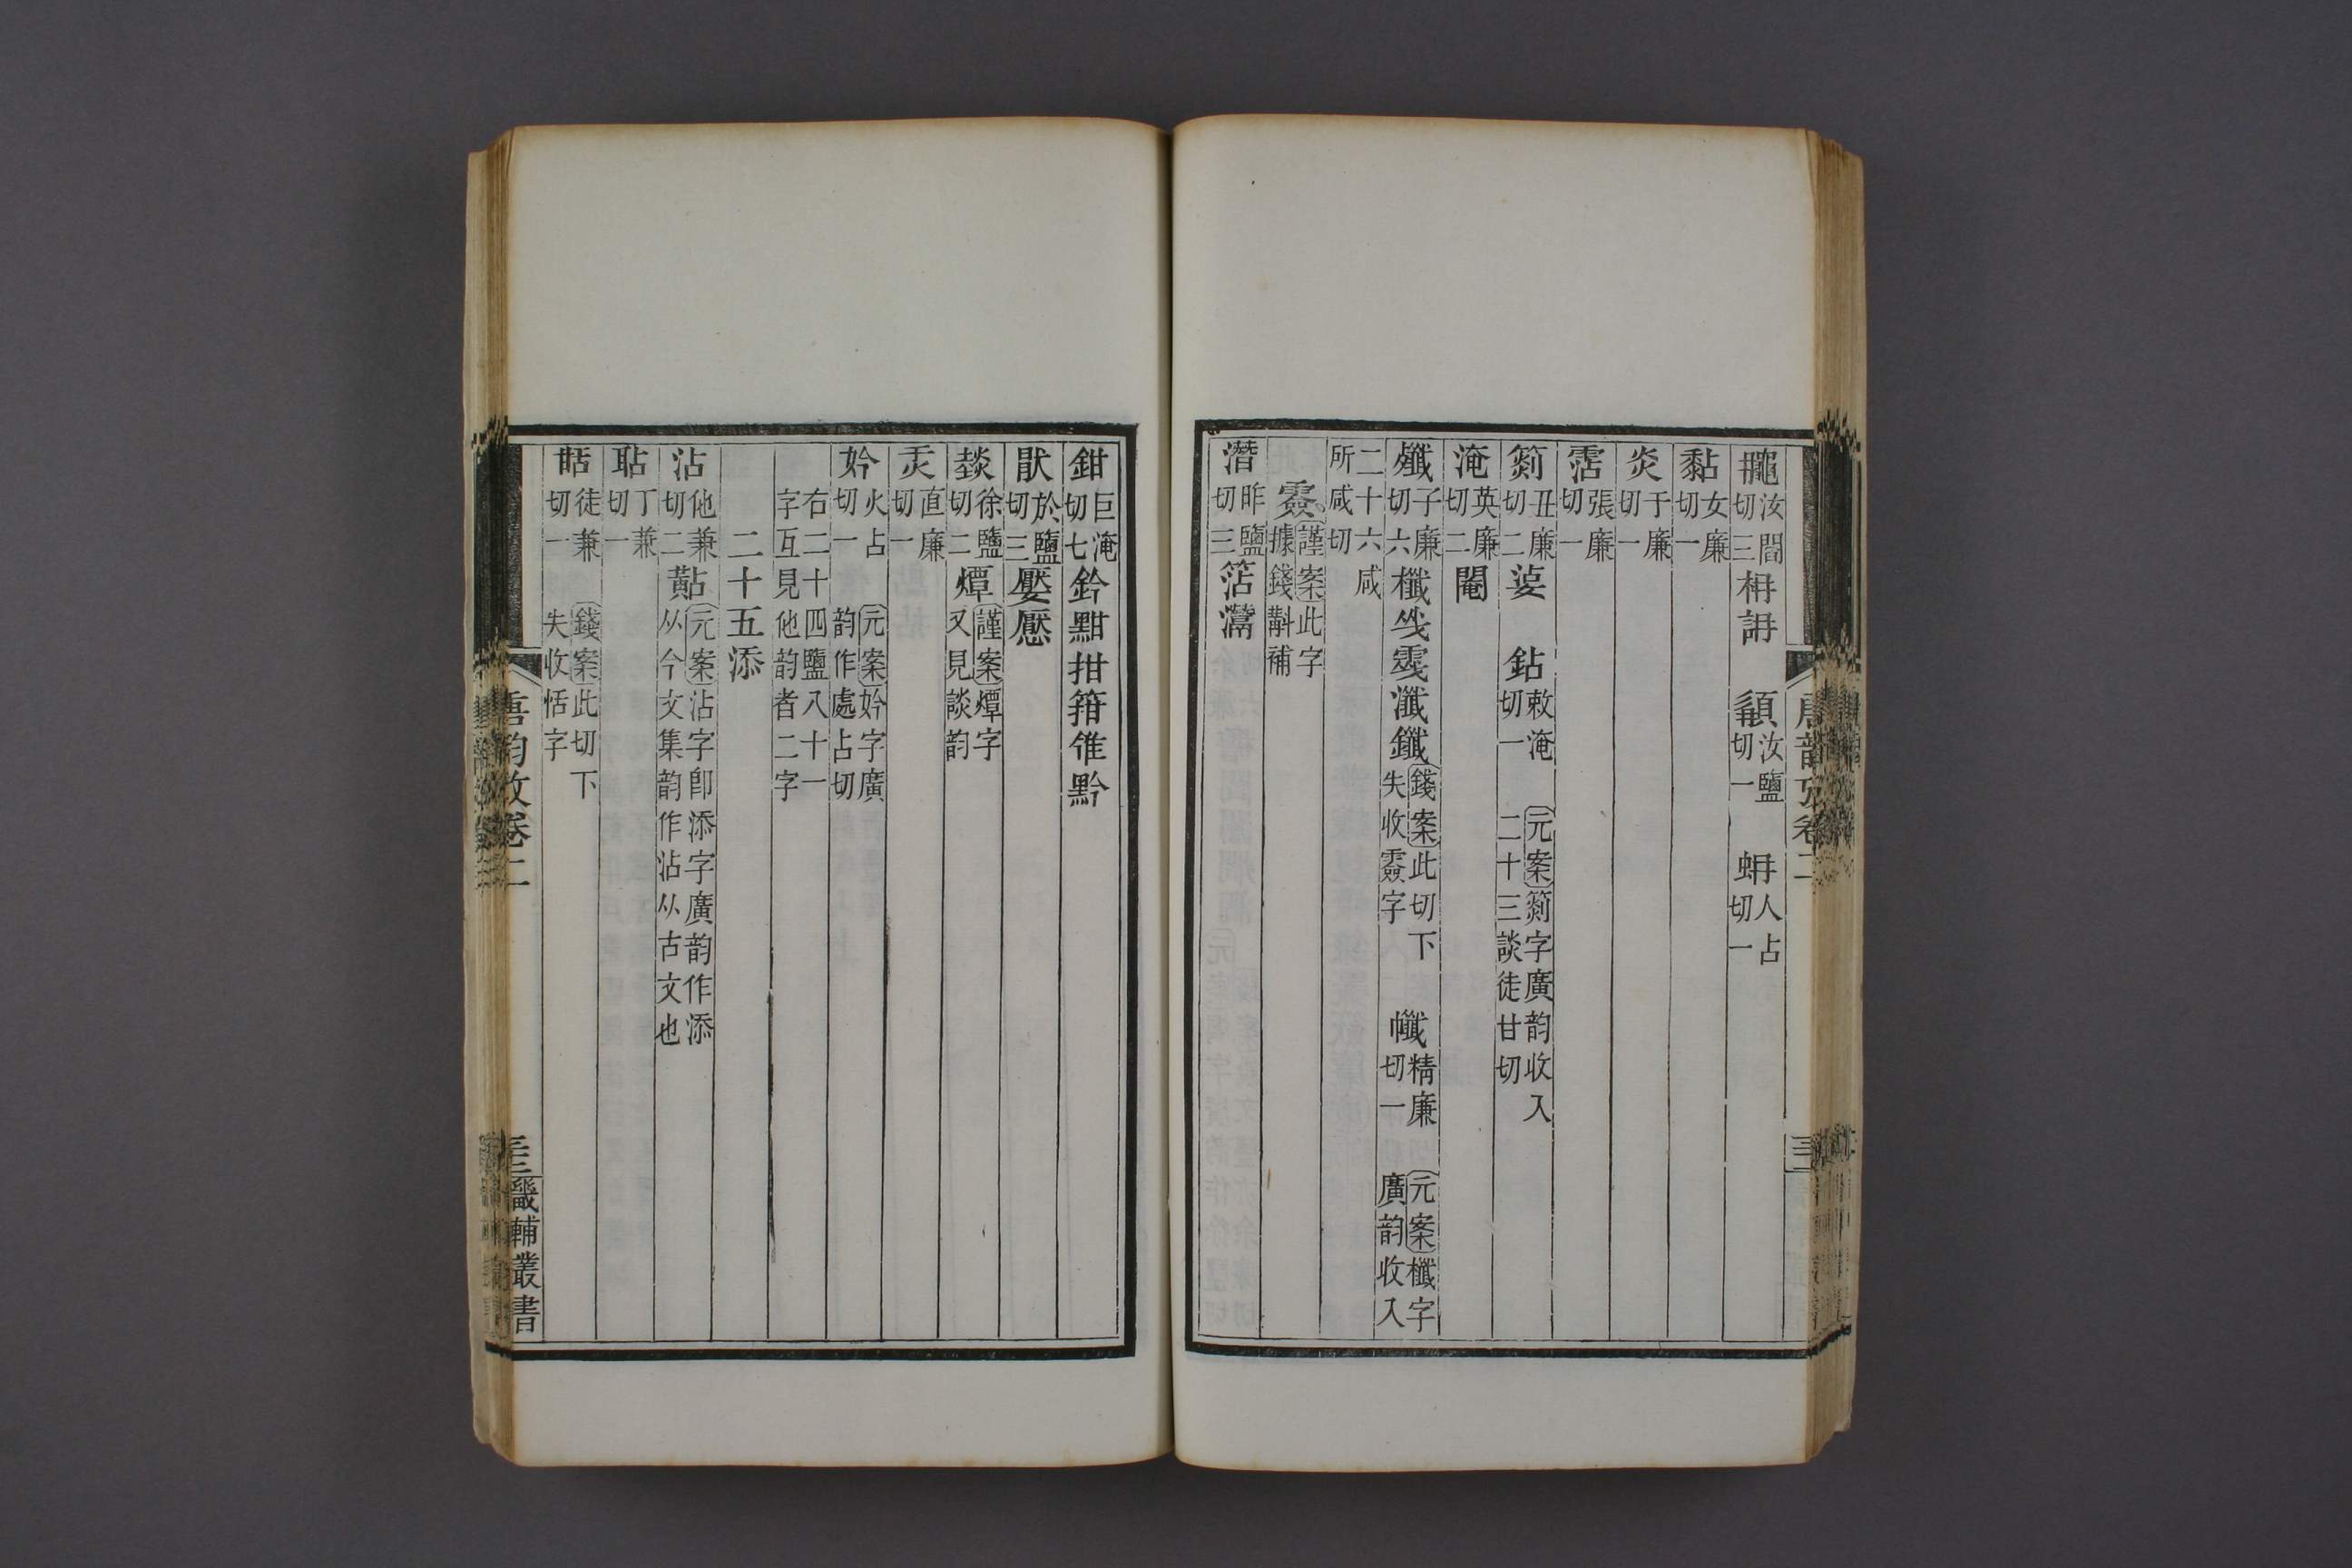 䵎汝閻切三枏詽 䫇汝鹽切一 蚦人占切一
黏女廉切一
炎于廉切一
霑張廉切一
䈴丑廉切二㛃 鉆敕淹切一 元案䈴字廣韵收入二十三談徒甘切
淹英廉切二閹
殲子廉切六櫼㦰霋瀸鑯錢案此切下失收霒字 㡨精廉切一 元案櫼字廣韵收入
二十六咸所咸切
謹案此字據錢斠補
潛昨鹽切三䈤灊
唐韵攷卷二
鉗巨淹切七鈐黚拑箝𨿅黔
猒於鹽切三嬮懕
燅徐鹽切二燂謹案燂字又見談韵
㶣直廉切一
妗火占切一 元案妗字廣韵作處占切
右二十四鹽八十一字互見他韵者二字
二十五添
沾他兼切二黇元案沾字卽添字廣韵作添从今文集韵作沾从古文也
耴丁兼切一
甛徒兼切一 錢案此切下失收恬字
唐韵攷卷二
畿輔叢書